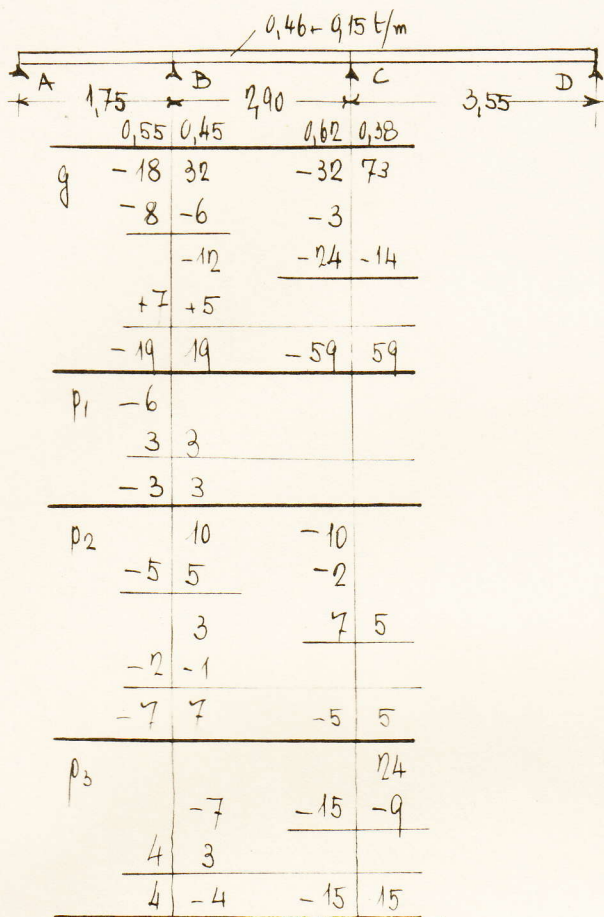 0,46+0,15 t/m
A B C D
1,75 2,90 3,55
0,55 0,45 0,62 0,38
g -18 32 -32 73
-8 -6 -3
-12 -24 -14
+7 +5
-19 19 -59 59
p1 -6
3 3
-3 3
p2 10 -10
-5 5 -2
3 7 5
-2 -1
-7 7 -5 5
p3 24
-7 -15 -9
4 3
4 -4 -15 15